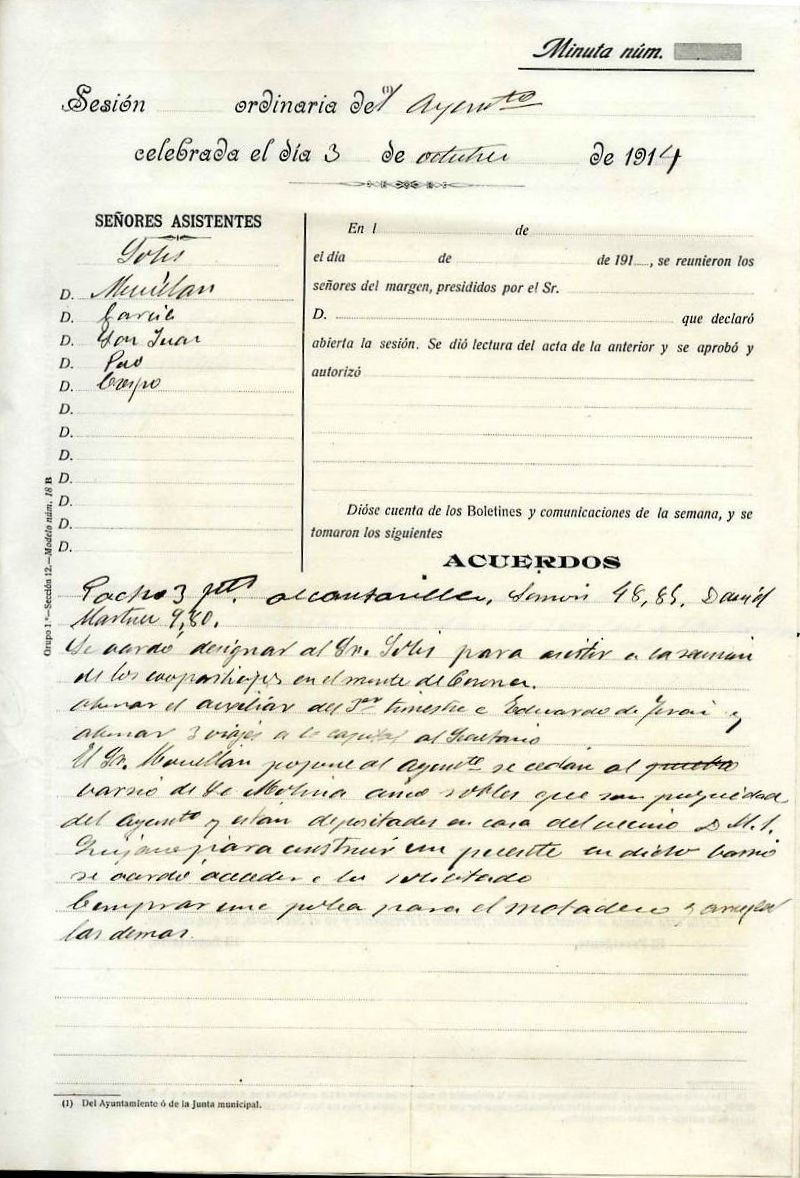 Minuta núm.
Sesión ordinaria del (1) Ayunto
celebrada el día 3 de octubre de 1914
SEÑORES ASISTENTES
Solis
D. Mouillan
D. García
D. San Juan
D. Rao
D. Crespo
D.
D.
D.
D.
D.
D.
D.
En l de
el día de de 191 , se reunieron los
señores del margen, presididos por el Sr.
D. que declaró
abierta la sesión. Se dió lectura del acta de la anterior y se aprobó y
autorizó
Dióse cuenta de los Boletines y comunicaciones de la semana, y se
tomaron los siguientes
ACUERDOS
3 pts. alcantarilla, 48,85, David
Martinez 9,80.
Se acordó designar al Sr. Solis para asistir a la reunión
de los copartícipes en el monte de
abonar el auxiliar del 3er trimestre a Eduardo de y
abonar 3 viajes a la capital al Secretario
El Sr. Mouillan propone al Ayunto se cedan al
barrio de La Molina robles que son propiedad
del Ayunto y están depositados en casa del vecino D. M. S.
para construir un puente en dicho barrio
se acordó acceder a lo solicitado
Comprar una polea para el matadero y arreglar
las demas.
Grupo 1.º—Sección 12.—Modelo núm. 18 B
(1) Del Ayuntamiento ó de la Junta municipal.